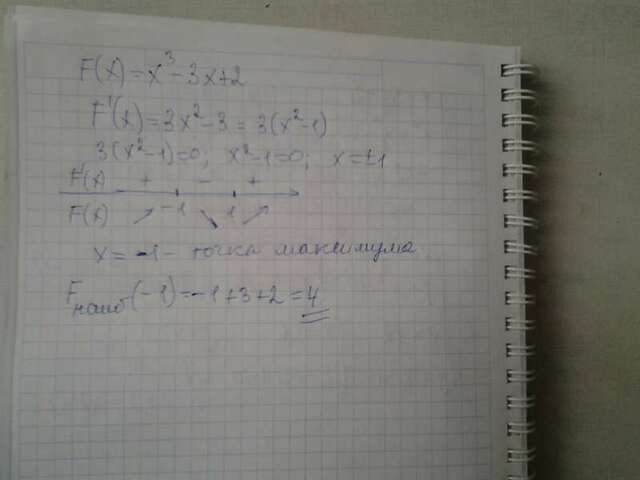 F(x) = x³ - 3x + 2
F'(x) = 3x² - 3 = 3(x² - 1)
3(x² - 1) = 0; x² - 1 = 0; x = ±1
F'(x) + - +
F(x) ↗ -1 ↘ 1 ↗
x = -1 - точка максимума
Fнаиб(-1) = -1 + 3 + 2 = 4